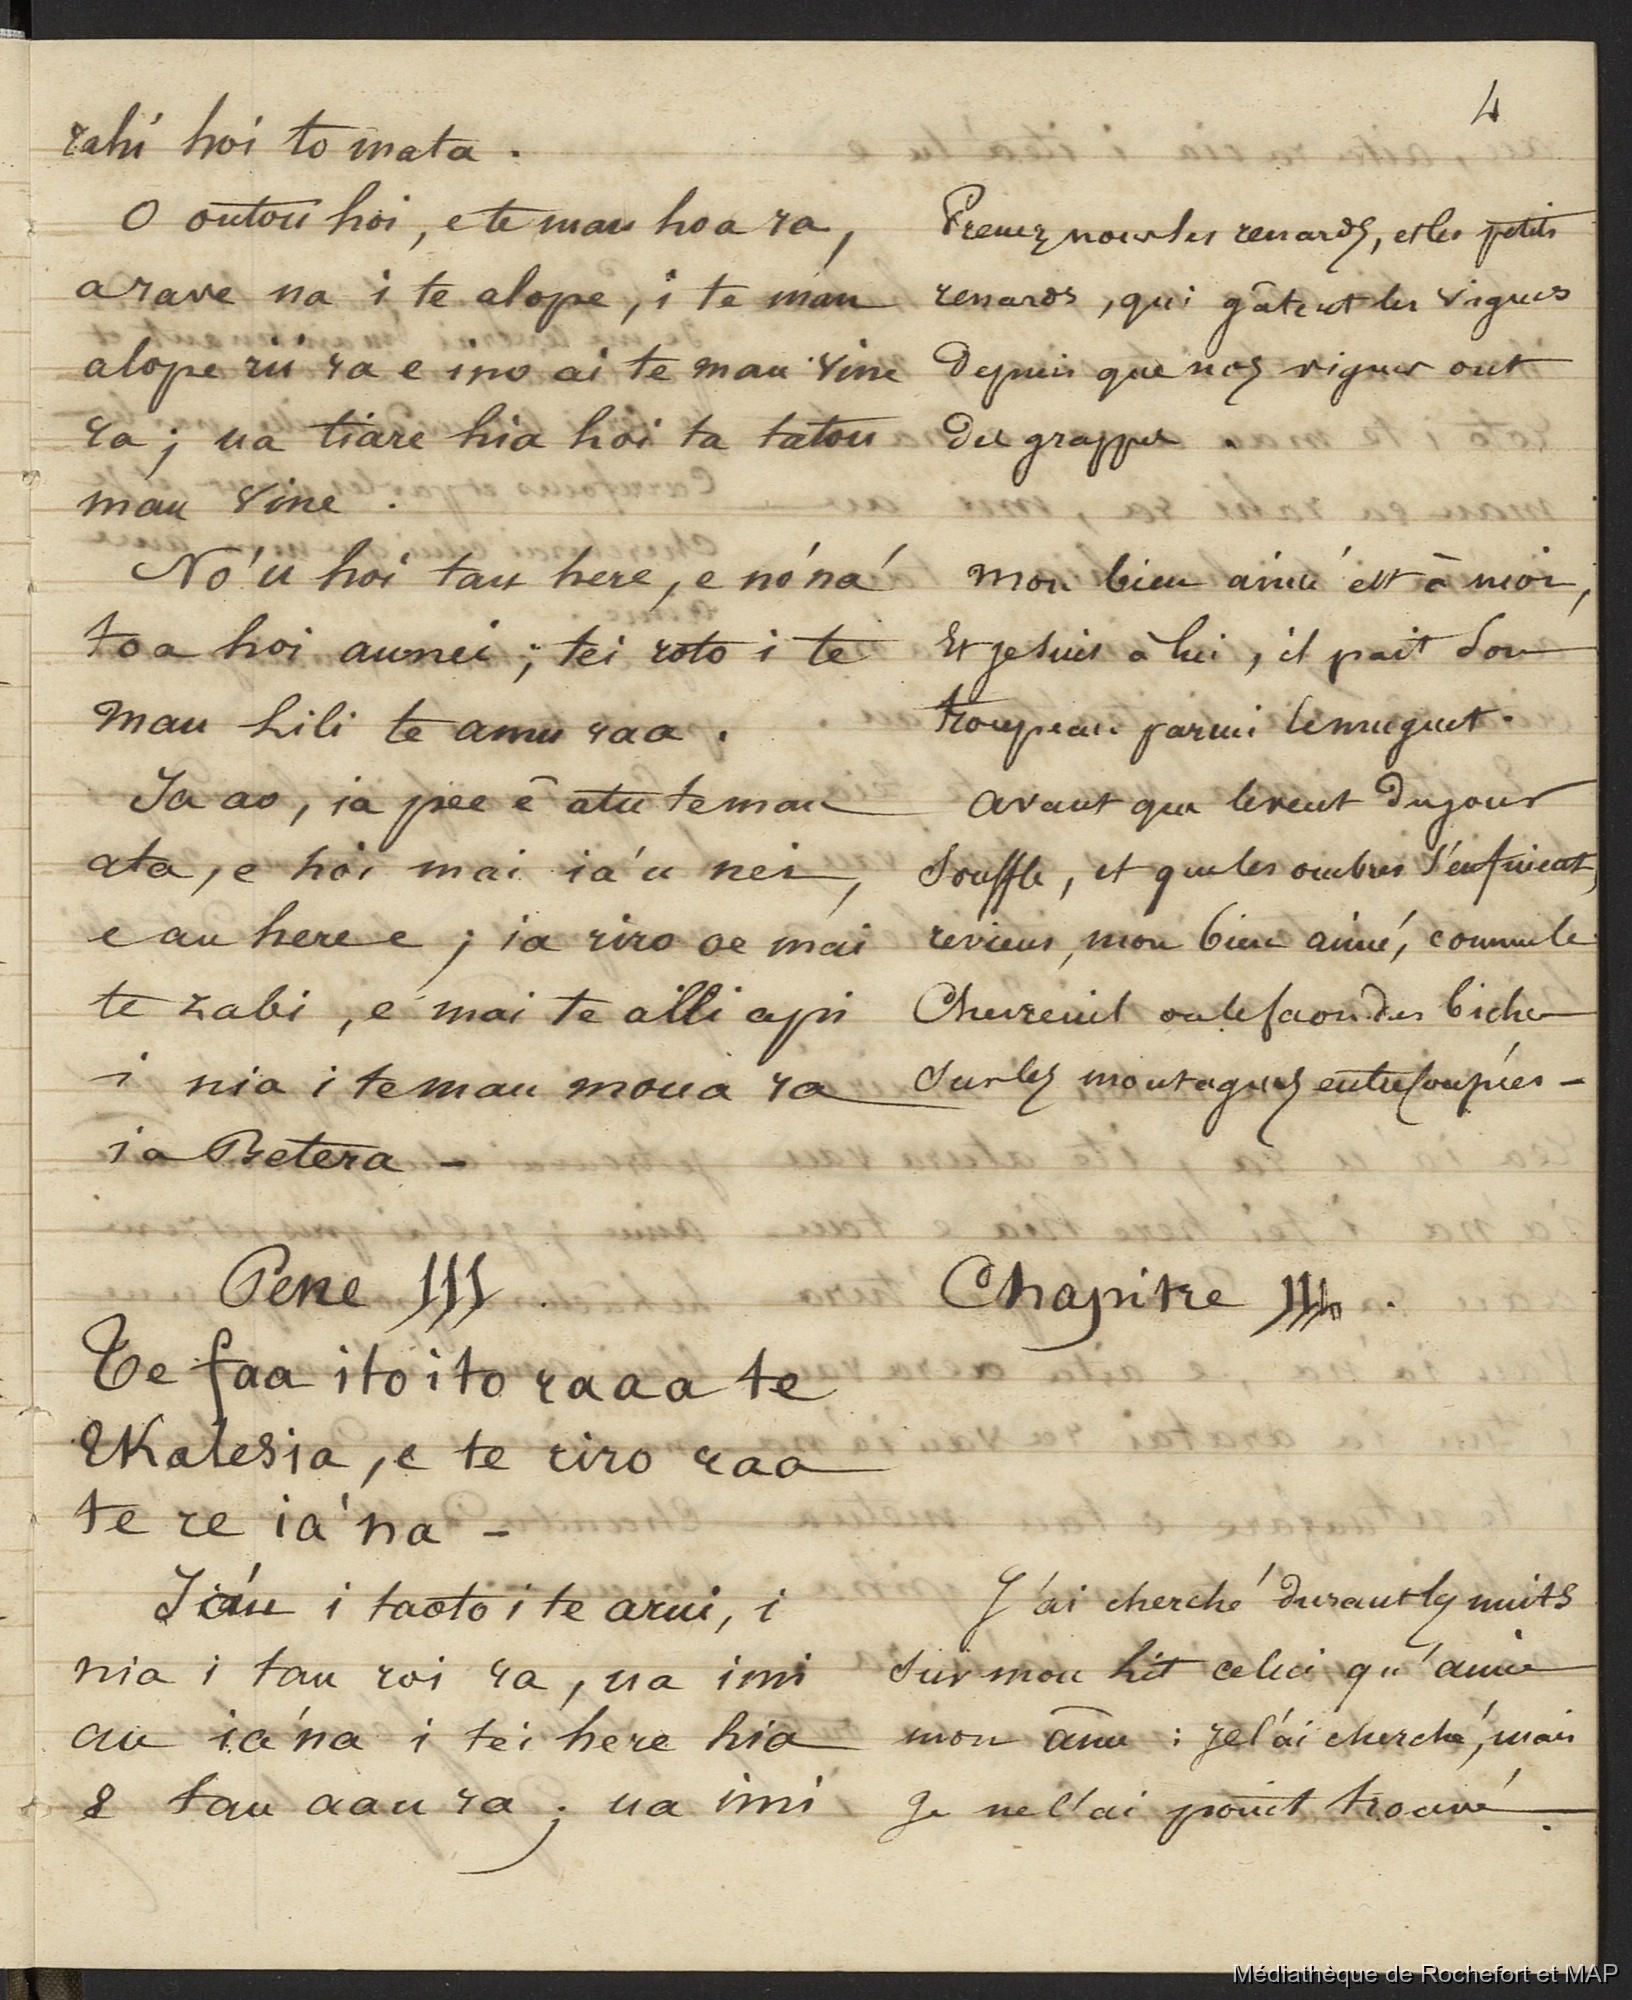 4
rahi hoi to mata.
O outou hoi, e te mau hoa ra,
a rave na i te alope, i te mau
alope rii ra e ino ai te mau vine
ra; ua tiare hia hoi ta tatou
mau vine.
No'u hoi tau here, e no'na'
toa hoi au nei; tei roto i te
mau lili te amu raa.
Ia ao, ia pee ē atu te mau
ata, e hoi mai ia'u nei,
e au here e; ia riro oe mai
te zabi, e mai te aili api
i nia i te mau moua ra
ia Betera -
Pene III.
Te faa itoito raa a te
Ekalesia, e te riro raa
te re ia'na -
Ia'u i taoto i te arui, i
nia i tau roi ra, ua imi
au ia'na i tei here hia
e tau aau ra; ua imi
Prenez nous les renards, et les petits
renards, qui gâtent les vignes
Depuis que nos vignes ont
des grappes.
Mon bien aimé est à moi,
Et je suis à lui, il pait son
troupeau parmi le muguet.
Avant que le vent du jour
Souffle, et que les ombres s'enfuient,
reviens, mon bien aimé, comme le
Chevreuil ou le faon des biches
Sur les montagnes entrecoupées -
Chapitre III.
J'ai cherché durant les nuits
Sur mon lit celui qu'aime
mon âme : je l'ai cherché, mais
Je ne l'ai point trouvé.
Médiathèque de Rochefort et MAP